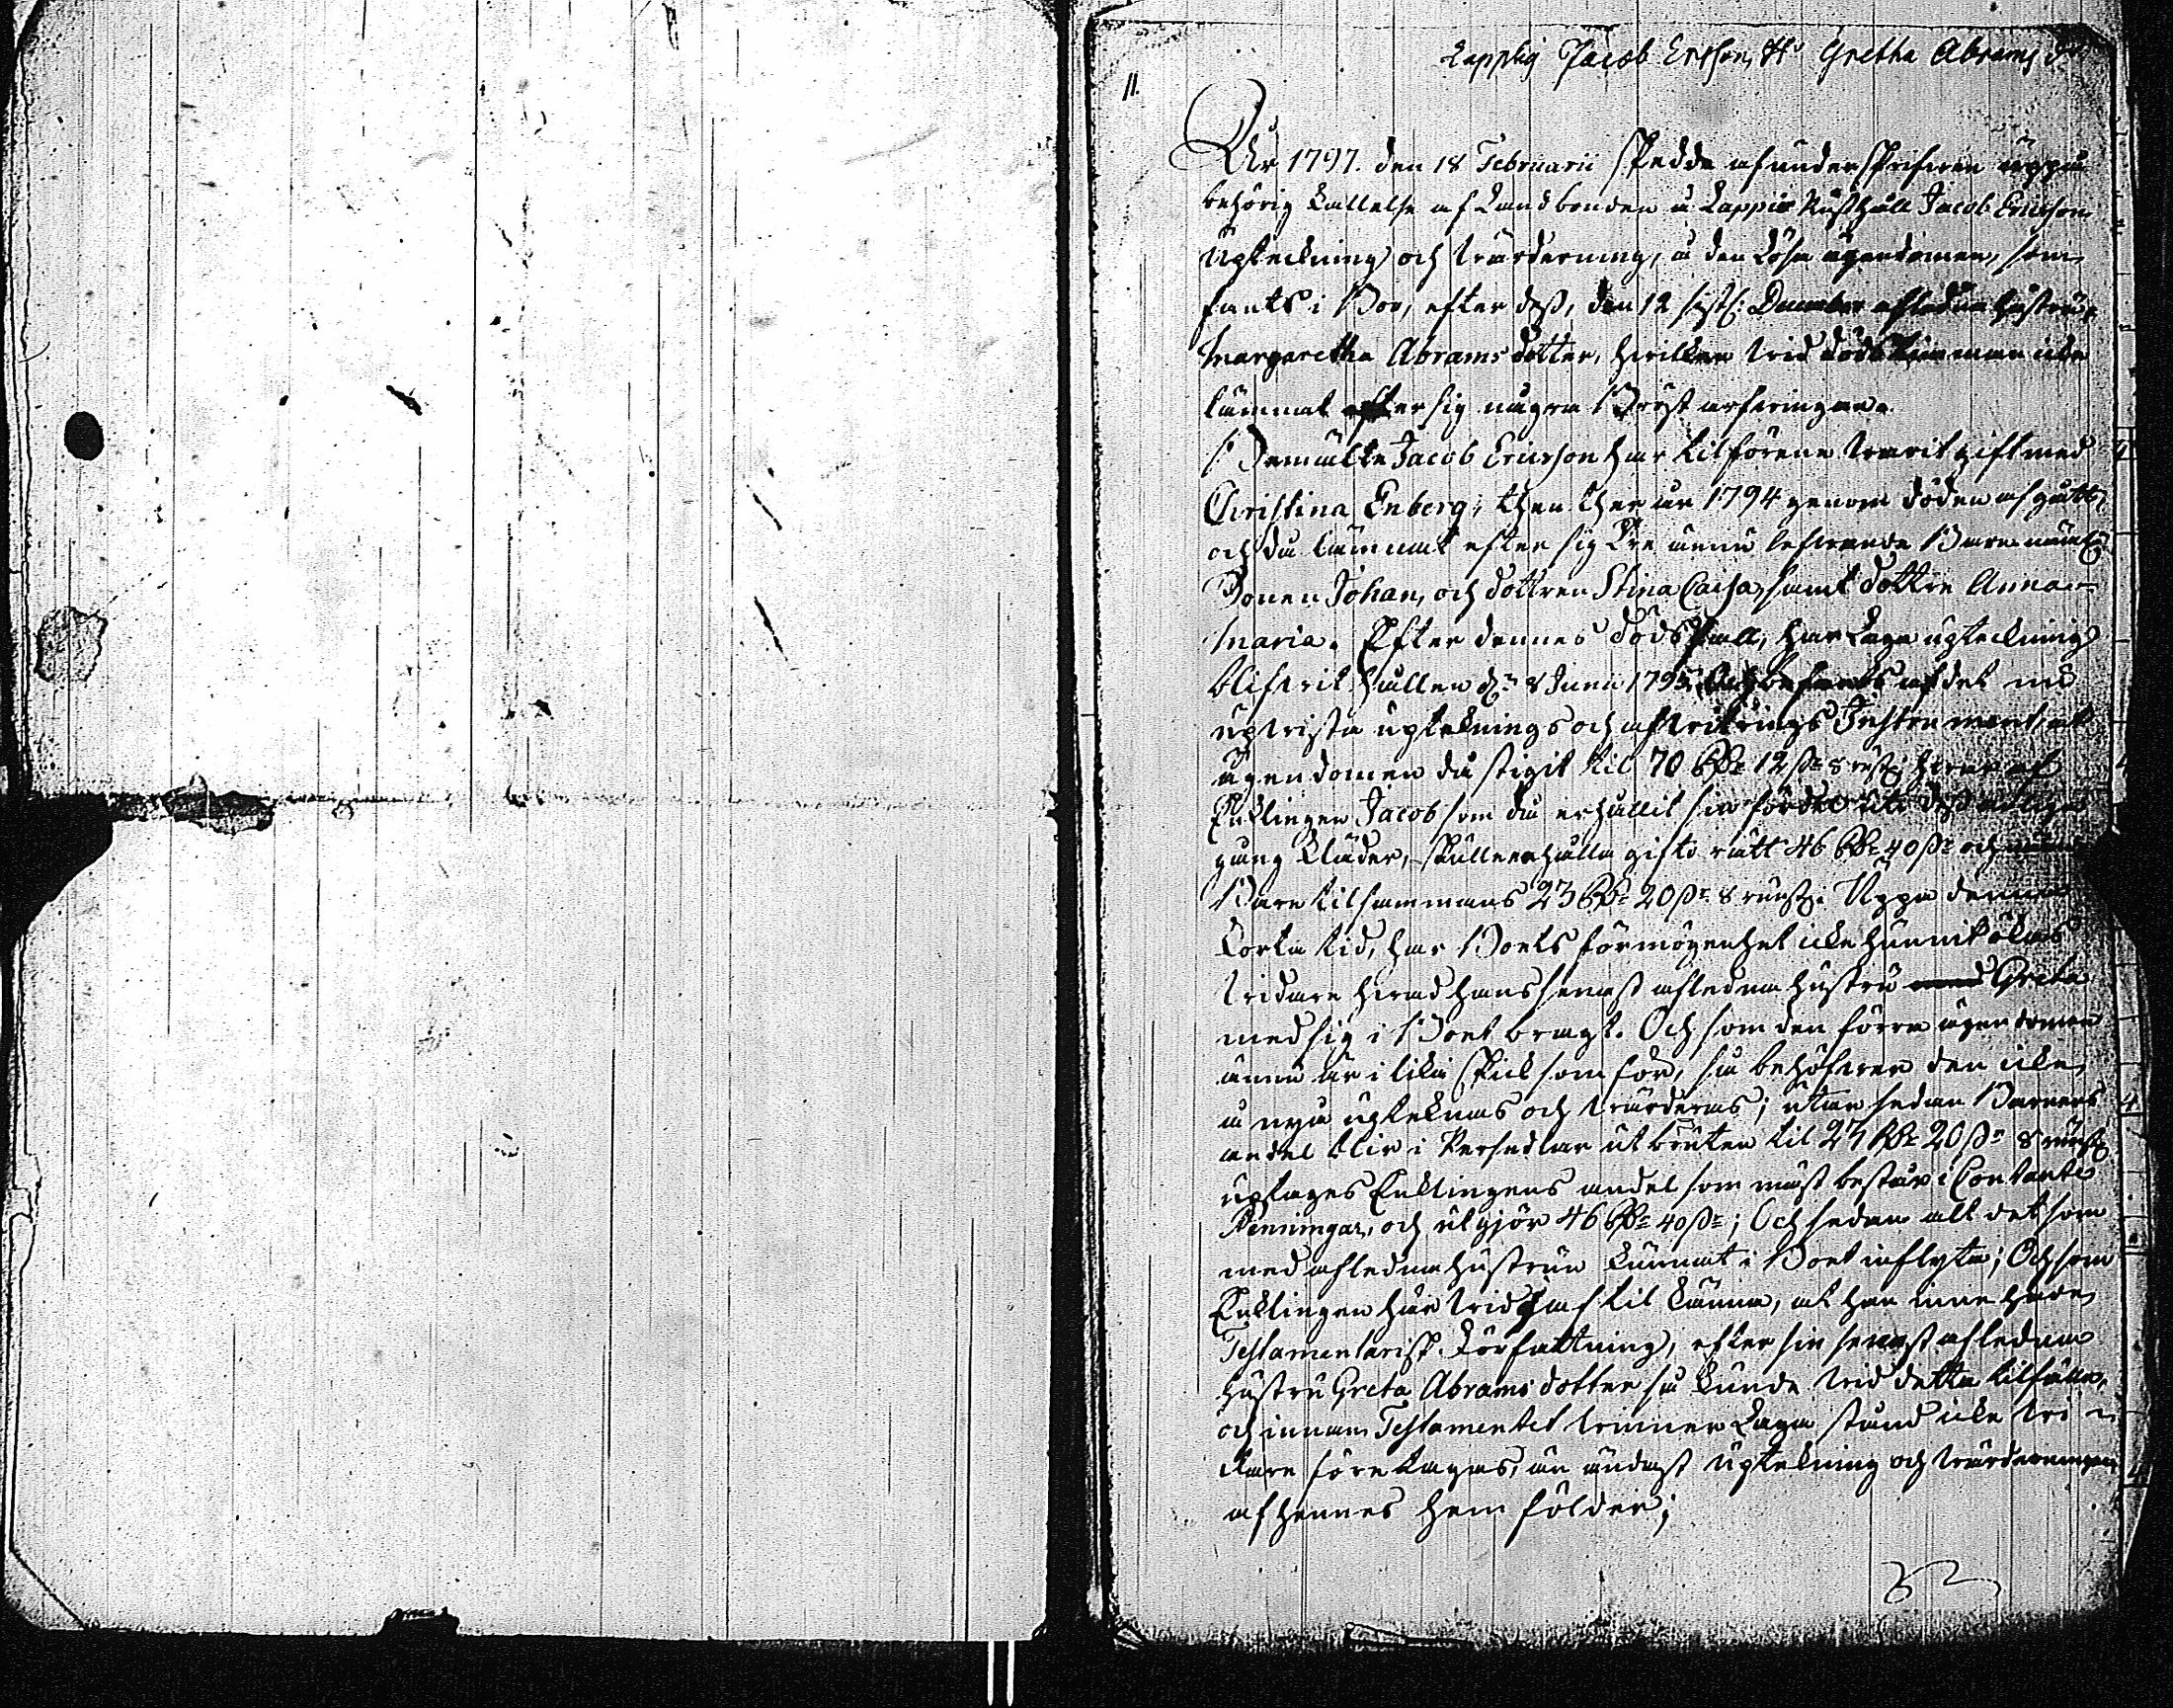 Lapptig Jacob Ersson, H:o Gretha Abrams dr
11.
Åhr 1797. den 18 Februarii skedde af underskrifven uppå
behörig kallelse af Landbonden å Lappis Rusthåll Jacob Ericsson
Uptekning och värdering, å den Lösa ägendomen, som
fants i Bor, efter dess, den 12 sistl: December aflednа hustru,
Margaretha Abrams dotter, hvilken vid döds timman icke
lämnat efter sig några Bröst arfvingar.
Bemälte Jacob Ericsson har tilförene varit gift med
Christina Enberg; then ther år 1794 genom döden afgått,
och då lämnat efter sig Tre ännu lefvande Barn näml:
Sonen Johan, och dottren Stina Caisa, samt dottre Anna
Maria. Efter dennes dödsfall, har Laga uptekning
blifvit hållen d:n 8 Junii 1795. Och befants af det nu
upvista uptecknings och afvitrings Instrument, at
ägendomen då stigit til 70 RD:r 12 s:r 8 rst: hvar af
Enklingen Jacob som då erhållit sin fördel uti dess
gång kläder, skulle erhålla gifto rätt 46 RD:r 40 s:r och
Barn tilsammans 23 RD:r 20 s:r 8 runst: Uppå denna
korta tid, har Boets förmögenhet icke hunnit ökas
vidare hvad hans senast afledna hustru Greta
med sig i Boet bragt. Och som den förra ägendomen
ännu är i lika skick som för, så behöfver den icke
å nyo upteknas och värderas; utan sedan Barnens
andel blir i Persedlar utbruten til 23 RD:r 20 s:r 8 runst:
uptages Enklingens andel som mäst består i Contante
Penningar, och utgjör 46 RD:r 40 s:r; Och sedan alt det som
med afledna hustrun kunnat i Boet inflyta; Och som
Enklingen här vid gaf til känna, at han innehade
Testamentarisk Författning, efter sin senast afledna
hustru Greta Abrams dotter så kunde vid detta tilfälle,
och innan Testamentet vinner Laga stånd icke vi-
dare företagas, än endast uptekning och värderingen
af hennes hem följder;